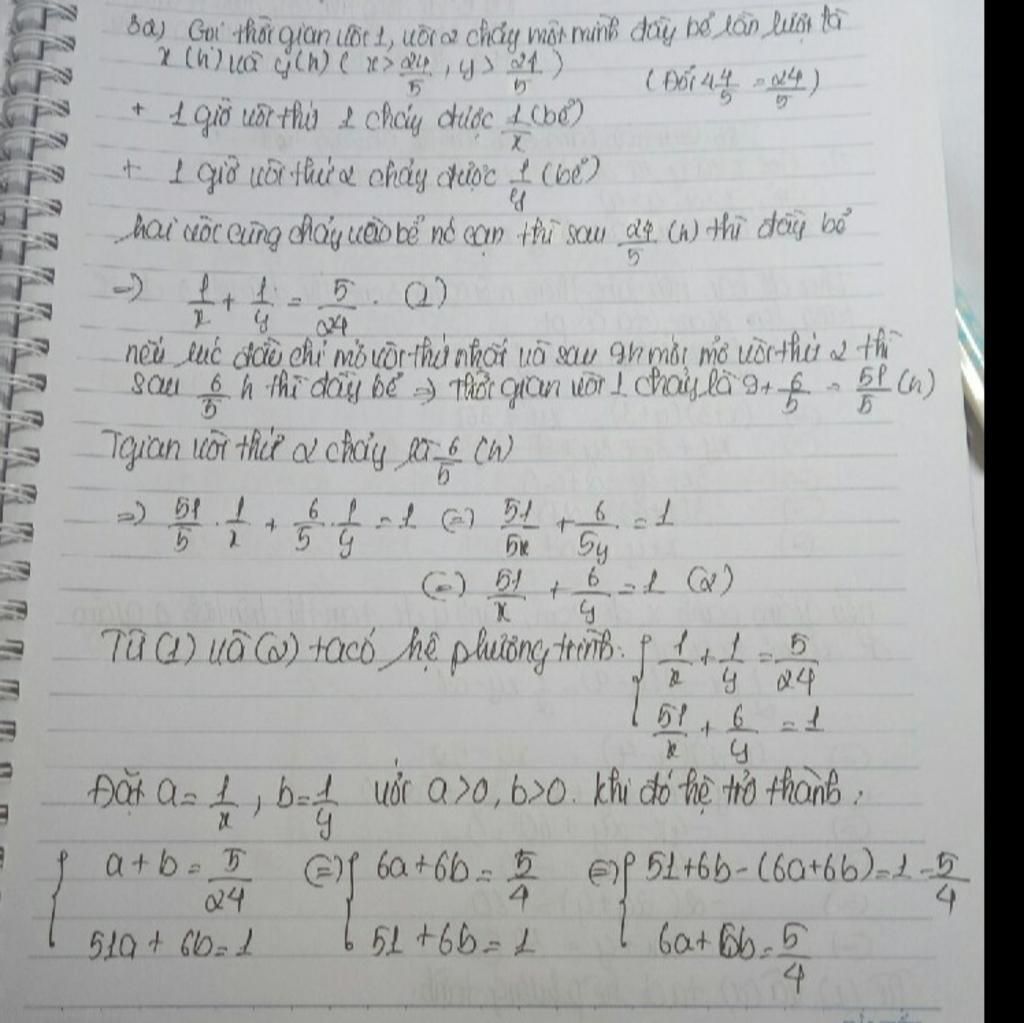 3a) Gọi thời gian vòi 1, vòi 2 chảy một mình đầy bể lần lượt là
x (h) và y (h) ( x > 24/5 , y > 24/5 )
(Đổi 4 4/5 = 24/5)
+ 1 giờ vòi thứ 1 chảy được 1/x (bể)
+ 1 giờ vòi thứ 2 chảy được 1/y (bể)
hai vòi cùng chảy vào bể nó cạn thì sau 24/5 (h) thì đầy bể
=> 1/x + 1/y = 5/24 . (1)
nếu lúc đầu chỉ mở vòi thứ nhất và sau 9h mới mở vòi thứ 2 thì
sau 6/5 h thì đầy bể => Thời gian vòi 1 chảy là 9 + 6/5 = 51/5 (h)
Tgian vòi thứ 2 chảy là 6/5 (h)
=> 51/5 . 1/x + 6/5 . 1/y = 1 (=) 51/5x + 6/5y = 1
(=) 51/x + 6/y = 1 (2)
Từ (1) và (2) ta có hệ phương trình: { 1/x + 1/y = 5/24
51/x + 6/y = 1
Đặt a = 1/x , b = 1/y với a > 0, b > 0. Khi đó hệ trở thành:
{ a + b = 5/24 (=) { 6a + 6b = 5/4 (=) { 51 + 6b - (6a + 6b) = 1 - 5/4
51a + 6b = 1 51 + 6b = 1 6a + 6b = 5/4